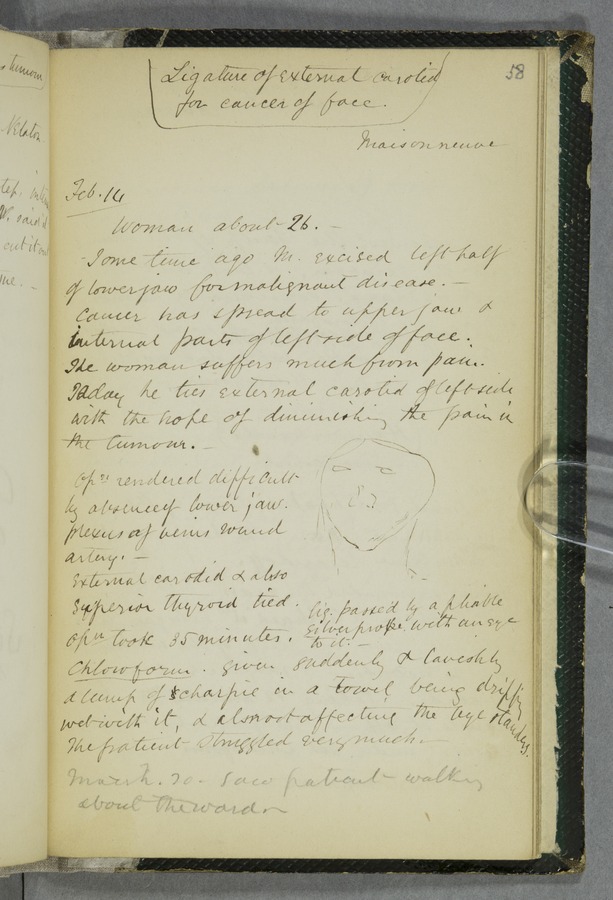 58
Ligature of external carotid
for cancer of face.
Maisonneuve
Feb. 14
Woman about 26. —
Some time ago M. excised left half
of lower jaw for malignant disease. —
Cancer has spread to upper jaw &
internal parts of left side of face.
The woman suffers much from pain.
Today he ties external carotid of left side
with the hope of diminishing the pain in
the tumour. —
Opn rendered difficult
by absence of lower jaw.
plexus of veins round
artery. —
External carotid & also
Superior thyroid tied.
lig. passed by a pliable
silver probe with an eye
to it. —
Opn took 35 minutes.
Chloroform. given suddenly & lavishly
a lump of charpie in a towel being dripping
wet with it, & almost affecting the bye standers.
The patient struggled very much —
March. 20 — Saw patient walking
about the ward —
tumour
Nelaton
said
cut it out
me. —